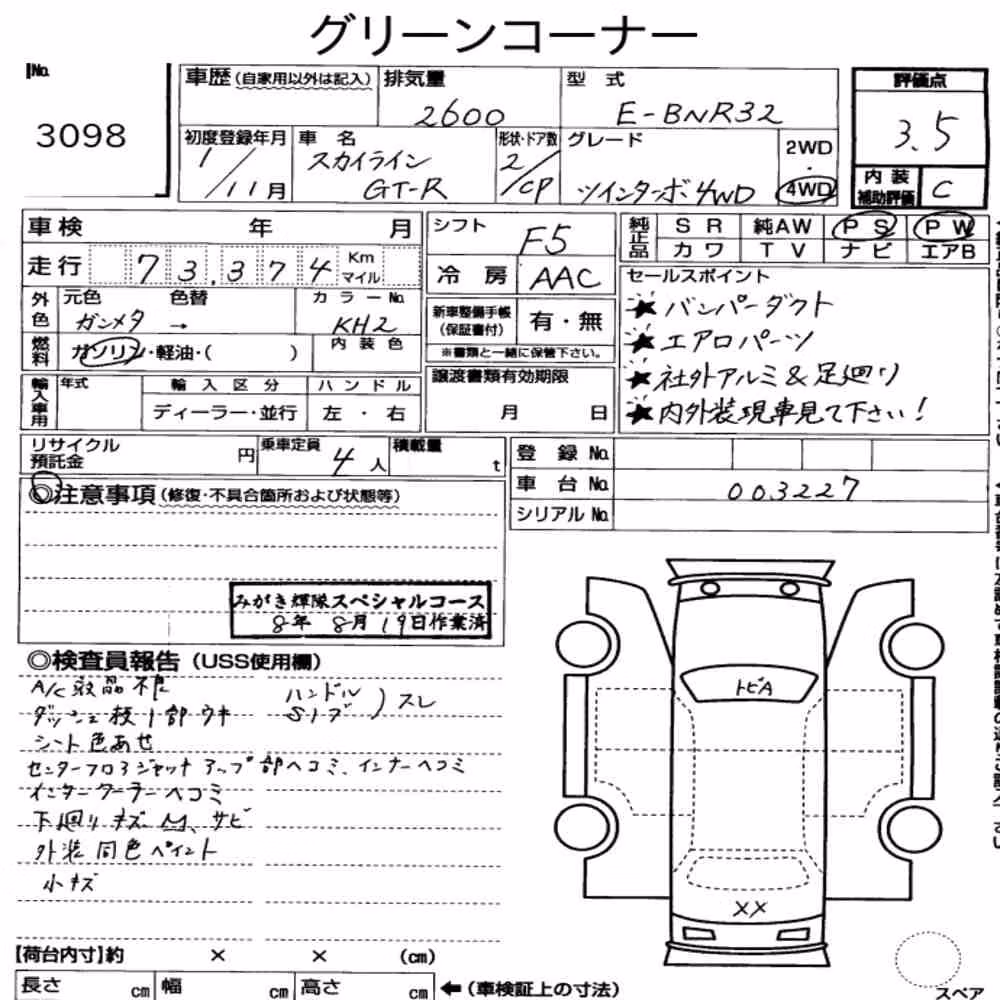 グリーンコーナー
No.
3098
車歴(自家用以外は記入)
排気量
2600
型 式
E-BNR32
評価点
3.5
初度登録年月
1/11月
車 名
スカイライン
GT-R
形状・ドア数
2/CP
グレード
ツインターボ4WD
2WD
・
4WD
内 装
補助評価
C
車 検 年 月
走 行 73,374 Km
マイル
シフト
F5
冷 房 AAC
純正品
S R 純AW P S P W
カ ワ T V ナ ビ エアB
外色
元色 色替
ガンメタ →
カ ラ ー No.
KH2
燃料
ガソリン・軽油・( )
内 装 色
新車整備手帳
(保証書付)
有・無
※書類と一緒に保管下さい。
セールスポイント
★バンパーダクト
★エアロパーツ
★社外アルミ&足廻り
★内外装現車見て下さい!
輸入車用
年式
輸 入 区 分
ハ ン ド ル
ディーラー・並行
左 ・ 右
譲渡書類有効期限
月 日
リサイクル
預託金
円
乗車定員
4人
積載量
t
登 録 No.
車 台 No. 003227
シリアル No.
◎注意事項(修復・不具合箇所および状態等)
みがき輝隊スペシャルコース
8年 8月19日作業済
◎検査員報告(USS使用欄)
A/C液晶不良
ダッシュ板1部ウキ
シート色あせ
ハンドル
Sノブ
)スレ
センターフロアジャッキアップ部ヘコミ、インナーヘコミ
インタークーラーヘコミ
下廻りキズM、サビ
外装同色ペイント
小キズ
トビA
XX
【荷台内寸】約 × × (cm)
長さ cm 幅 cm 高さ cm
←(車検証上の寸法)
スペア